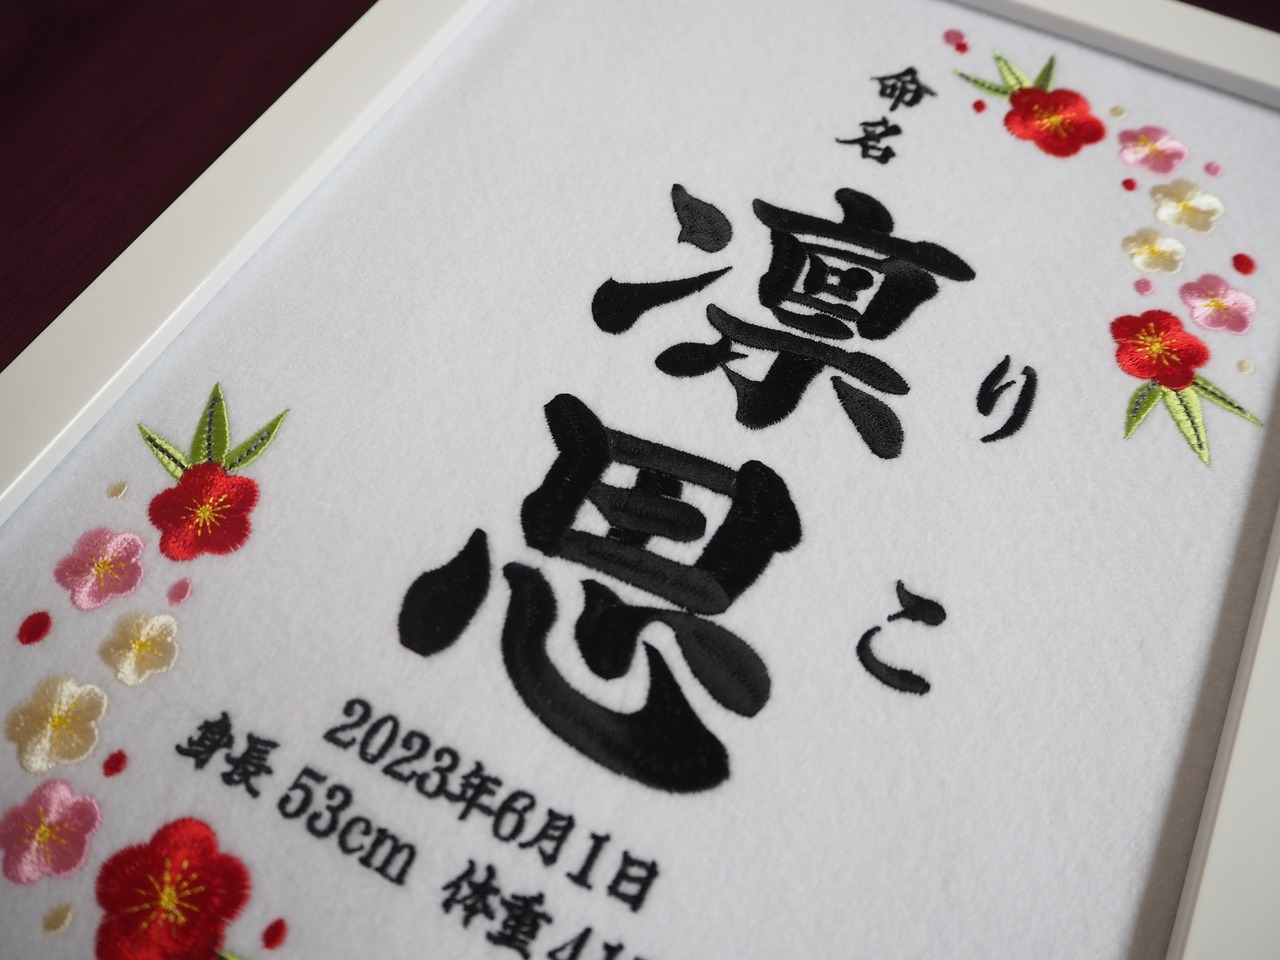 命名
凛思
りこ
2023年6月1日
身長 53cm 体重 41